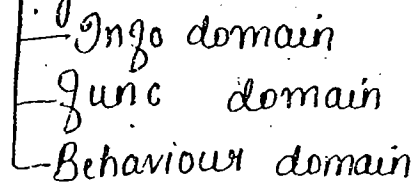 Info domain
Func domain
Behaviour domain